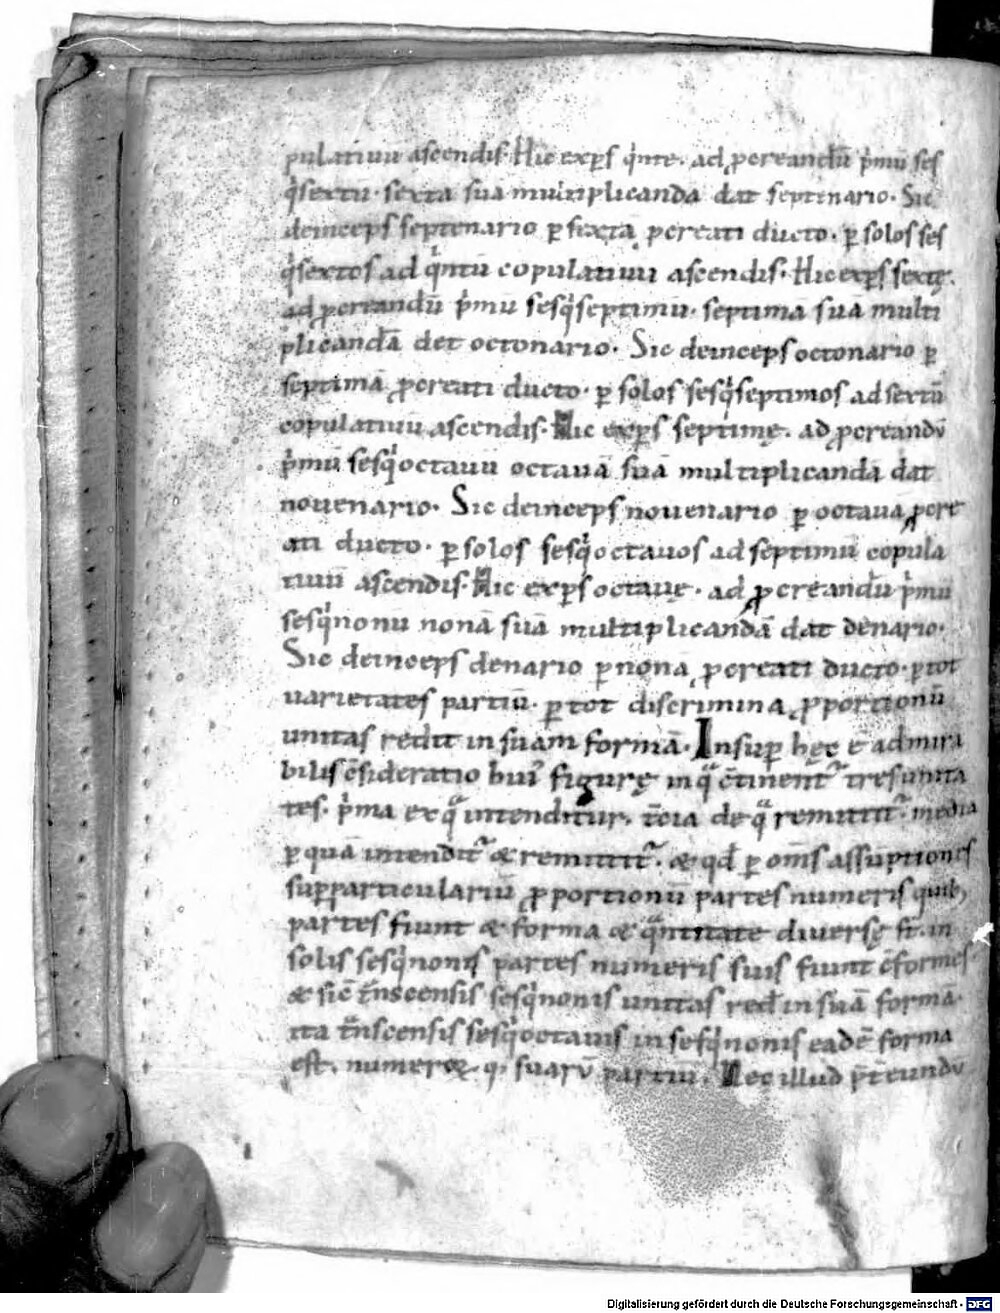 pulatiuu ascendis. Hic exp̄s q̍nte. ad ꝓcreandū p̍mū ses
q̍sextū. sexta sua multiplicanda dat septenario. Sic
deinceps septenario ꝑ sexta ꝓcreati ducto. ꝑ solos ses
q̍sextos ad q̍ntū copulatiuū ascendis. Hic exp̄s sextę.
ad ꝓcreandū p̍mū sesq̍septimū. septimā suā multi
plicandā det octonario. Sic deinceps octonario ꝑ
septimā ꝓcreati ducto. ꝑ solos sesq̍septimos ad sextū
copulatiuū ascendis. Hic exp̄s septimę. ad ꝓcreandū
p̍mū sesq̍octauū octauā suā multiplicandā dat
nouenario. Sic deinceps nouenario ꝑ octaua ꝓcre
ati ducto. ꝑ solos sesq̍octauos ad septimū copula
tiuū ascendis. Hic exp̄s octauę. ad ꝓcreandū p̍mū
sesq̍nonū nonā suā multiplicandā dat denario.
Sic deinceps denario ꝑ nona ꝓcreati ducto. ꝑ tot
uarietates partiū. ꝑ tot discrimina ꝓportionū
unitas redit in suam formā. Insuꝑ hęc ē admira
bilis c̄sideratio hui᷒ figurę in qᷓ c̄tinent᷑ tres unita
tes. p̍ma ex qᷓ intenditur. t̄cia de qᷓ remittit᷑. media
ꝑ quā intendit᷑ & remittit᷑. & qd̄ ꝑ om̄s assūptiones
suꝑparticulariū ꝓportionū partes numeris quib;
partes fiunt & forma & qᷓntitate diuersę st̄. in
solis sesq̍nonis partes numeris suis fiunt c̄formes.
& sic t̄nscensis sesq̍nonis unitas redit in suā formā.
ita t̄nscensis sesq̍octauis in sesq̍nonis eadē forma
est. numeroꝝ. q. suarū partiū. Nec illud p̄t̄eundū
Digitalisierung gefördert durch die Deutsche Forschungsgemeinschaft - DFG